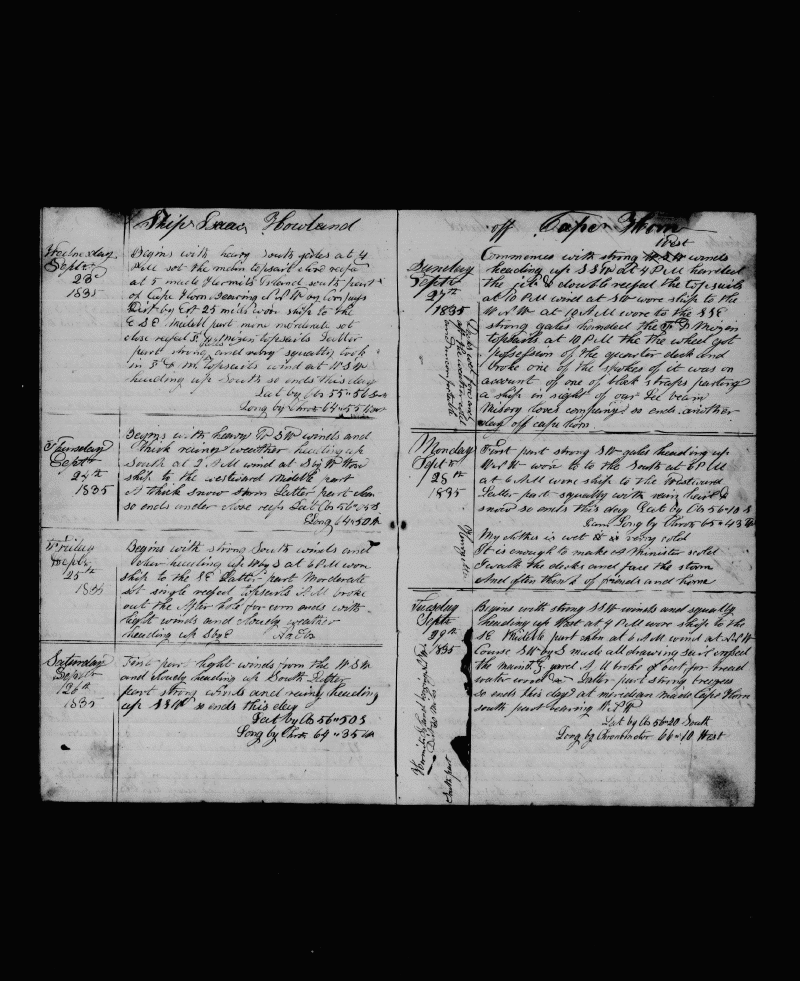 Ship Isaac Howland
Wednesday
Septr
23d
1835
Begins with heavy South gales at 4
P M set the main topsail close reefd
at 5 made Hermits Island south part
of Cape Horn bearing
West by 25 miles wore ship to the
E S E Middle part more moderate set
close reefd topsails Latter
part strong gales and very squally took
in topsails wind at W S W
heading up South so ends this day
Lat by Obs 55" 56 South
Long by Chron 64" 55 West
Thursday
Septr
24th
1835
Begins with heavy W S W winds and
thick rainy weather heading up
South at 2 P M wind at S by W wore
ship to the westward Middle part
A thick snow storm Latter part
so ends under close reefs Lat Obs 56" S
Long 64" 50 W
Friday
Septr
25th
1835
Begins with strong South winds and
heading up W by S at 6 P M wore
ship to the S E Latter part Moderate
set single reefed topsails A M broke
out the After hole for corn ends with
light winds and cloudy weather
heading up S by E No Obs
Saturday
Septr
26th
1835
First part light winds from the W S W
and cloudy heading up South Latter
part strong winds and rainy heading
up S S W so ends this day
Lat by Obs 56" 50 S
Long by Chron 64" 35 W
off Cape Horn
West
Sunday
Septr
27th
1835
Commences with strong winds
heading up S S W at 4 P M handed
the jib & double reefed the topsails
at 10 P M wind at S W wore ship to the
W N W at A M wore to the S S E
strong gales handed the Mizen
topsails at 10 P M the wheel got
possession of the quarter deck and
broke one of the spokes of it was on
account of one of block straps parting
a ship in sight of our Lee beam
Misery loves company so ends another
day off cape horn
Monday
Septr
28th
1835
First part strong S W gales heading up
wore to the South at 6 P M
at 6 A M wore ship to the Westward
Latter part squally with rain hail &
snow so ends this day Lat by Obs 56" 10 S
Long by Chron 65" 43 W
My clothes is wet it is very cold
It is enough to make A Minister scold
I walk the decks and face the storm
And often think of friends and home
Tuesday
Septr
29th
1835
Begins with strong S S W winds and squally
heading up West at 4 P M wore ship to the
S E Middle part calm at 6 A M wind at N N W
Course S W by S made all drawing sail crossed
the yard A M broke out for bread
water wood &c Latter part strong breezes
so ends this day at meridian made Cape Horn
south part bearing
Lat by Obs 56" 20 South
Long by Chronometer 66" 10 West
South part